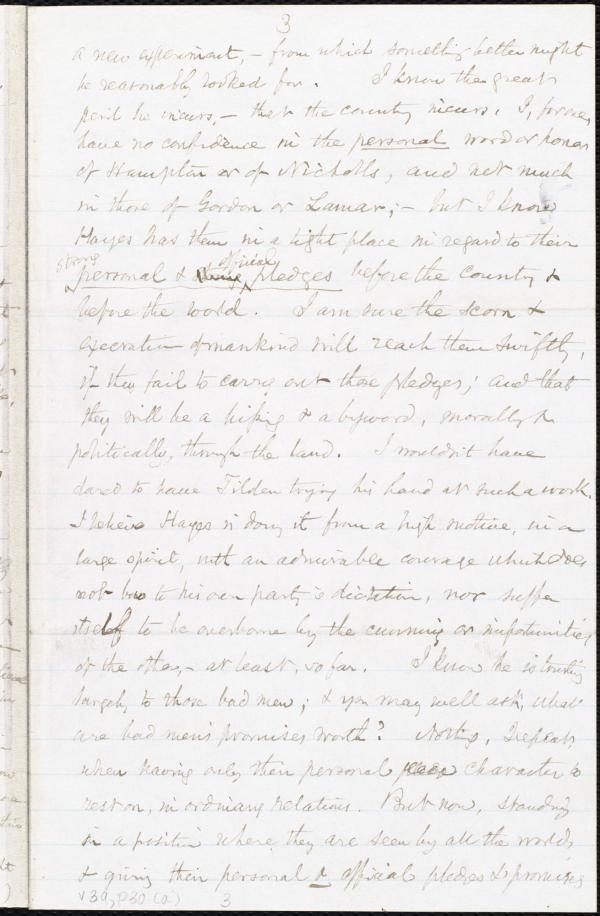 3
a new experiment, - from which something better might
be reasonably looked for. I know the great
peril he incurs, - that the country incurs. I, for one,
have no confidence in the personal word or honor
of Hampton or of Nicholls, and not much
in those of Gordon or Lamar; - but I know
Hayes has them in a tight place in regard to their
strong official
personal & pledges before the country &
before the world. I am sure the scorn &
execration of mankind will reach them swiftly,
if they fail to carry out those pledges; and that
they will be a hissing & a byword, morally &
politically, through the land. I wouldn't have
dared to have Tilden trying his hand at such a work.
I believe Hayes is doing it from a high motive, in a
large spirit, with an admirable courage which does
not bow to his own party's dictation, nor suffer
itself to be overborne by the cunning or importunities
of the other, - at least, so far. I know he is trusting
largely to those bad men; & you may well ask, what
are bad men's promises worth? Nothing, I repeat,
when having only their personal character to
rest on, in ordinary relations. But now, standing
in a position where they are seen by all the world,
& giving their personal & official pledges & promises
v39, p30 (a) 3